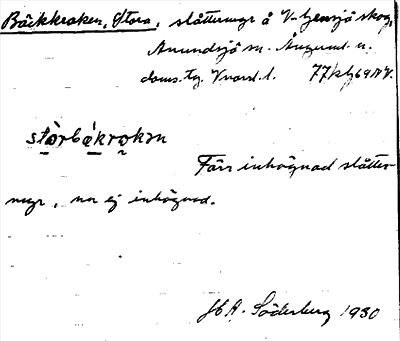 Bäckkroken, Stora, slåttermyr å V. Gensjö skog,
Anundsjö sn. Ångerml. n.
doms. tg. Vnorrl. l. 77 kf69NV.
stòrbǽkrokɷn
Förr inhägnad slåtter-
myr, nu ej inhägnad.
H. A. Söderberg 1930